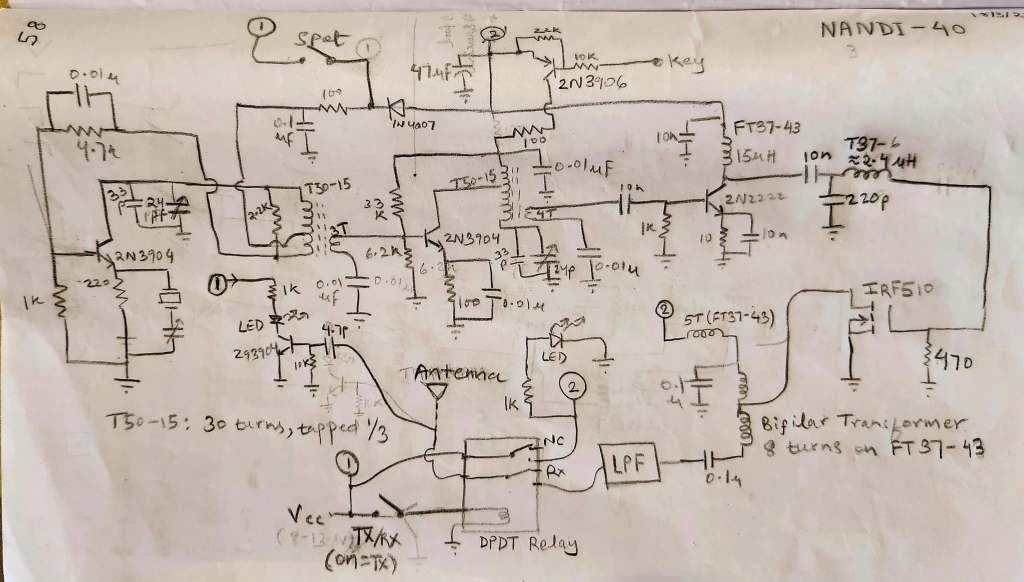 58
NANDI-40
3
1
Spot
1
2
22K
10K
Key
47μF
2N3906
0.01μ
4.7K
100
0.1
μF
1N4007
100
10n
FT37-43
15μH
10n
T37-6
≈2.4μH
220p
33
p
24
pF
2.2K
T50-15
3T
33
K
T50-15
4T
0.01μF
10n
1K
2N2222
10
10n
2N3904
220
1K
6.2K
2N3904
100
0.01μ
33
p
24p
0.01μ
0.01
μF
0.01μ
1
1K
LED
2N3904
10K
4.7p
LED
1K
2
2
5T (FT37-43)
IRF510
470
0.1
μ
Antenna
T50-15: 30 turns, tapped 1/3
Bifilar Transformer
8 turns on FT37-43
NC
Rx
LPF
0.1μ
1
Vcc
TX/RX
(on=TX)
DPDT Relay